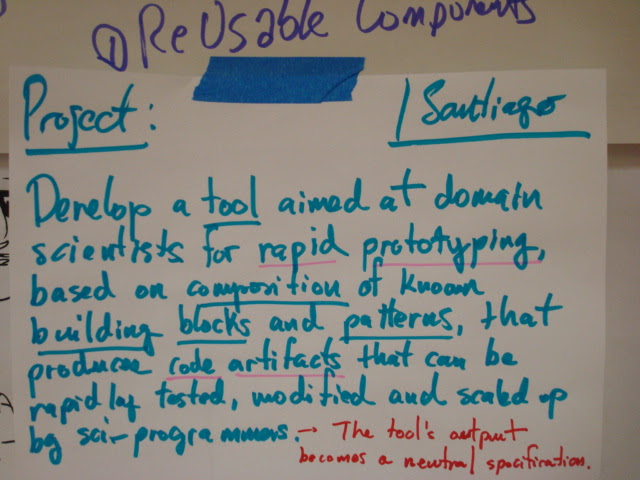 ① ReUsable Components
Project: / Santiago
Develop a tool aimed at domain
scientists for rapid prototyping,
based on composition of known
building blocks and patterns, that
produce code artifacts that can be
rapidly tested, modified and scaled up
by sci-programmers. → The tool's output
becomes a neutral specification.